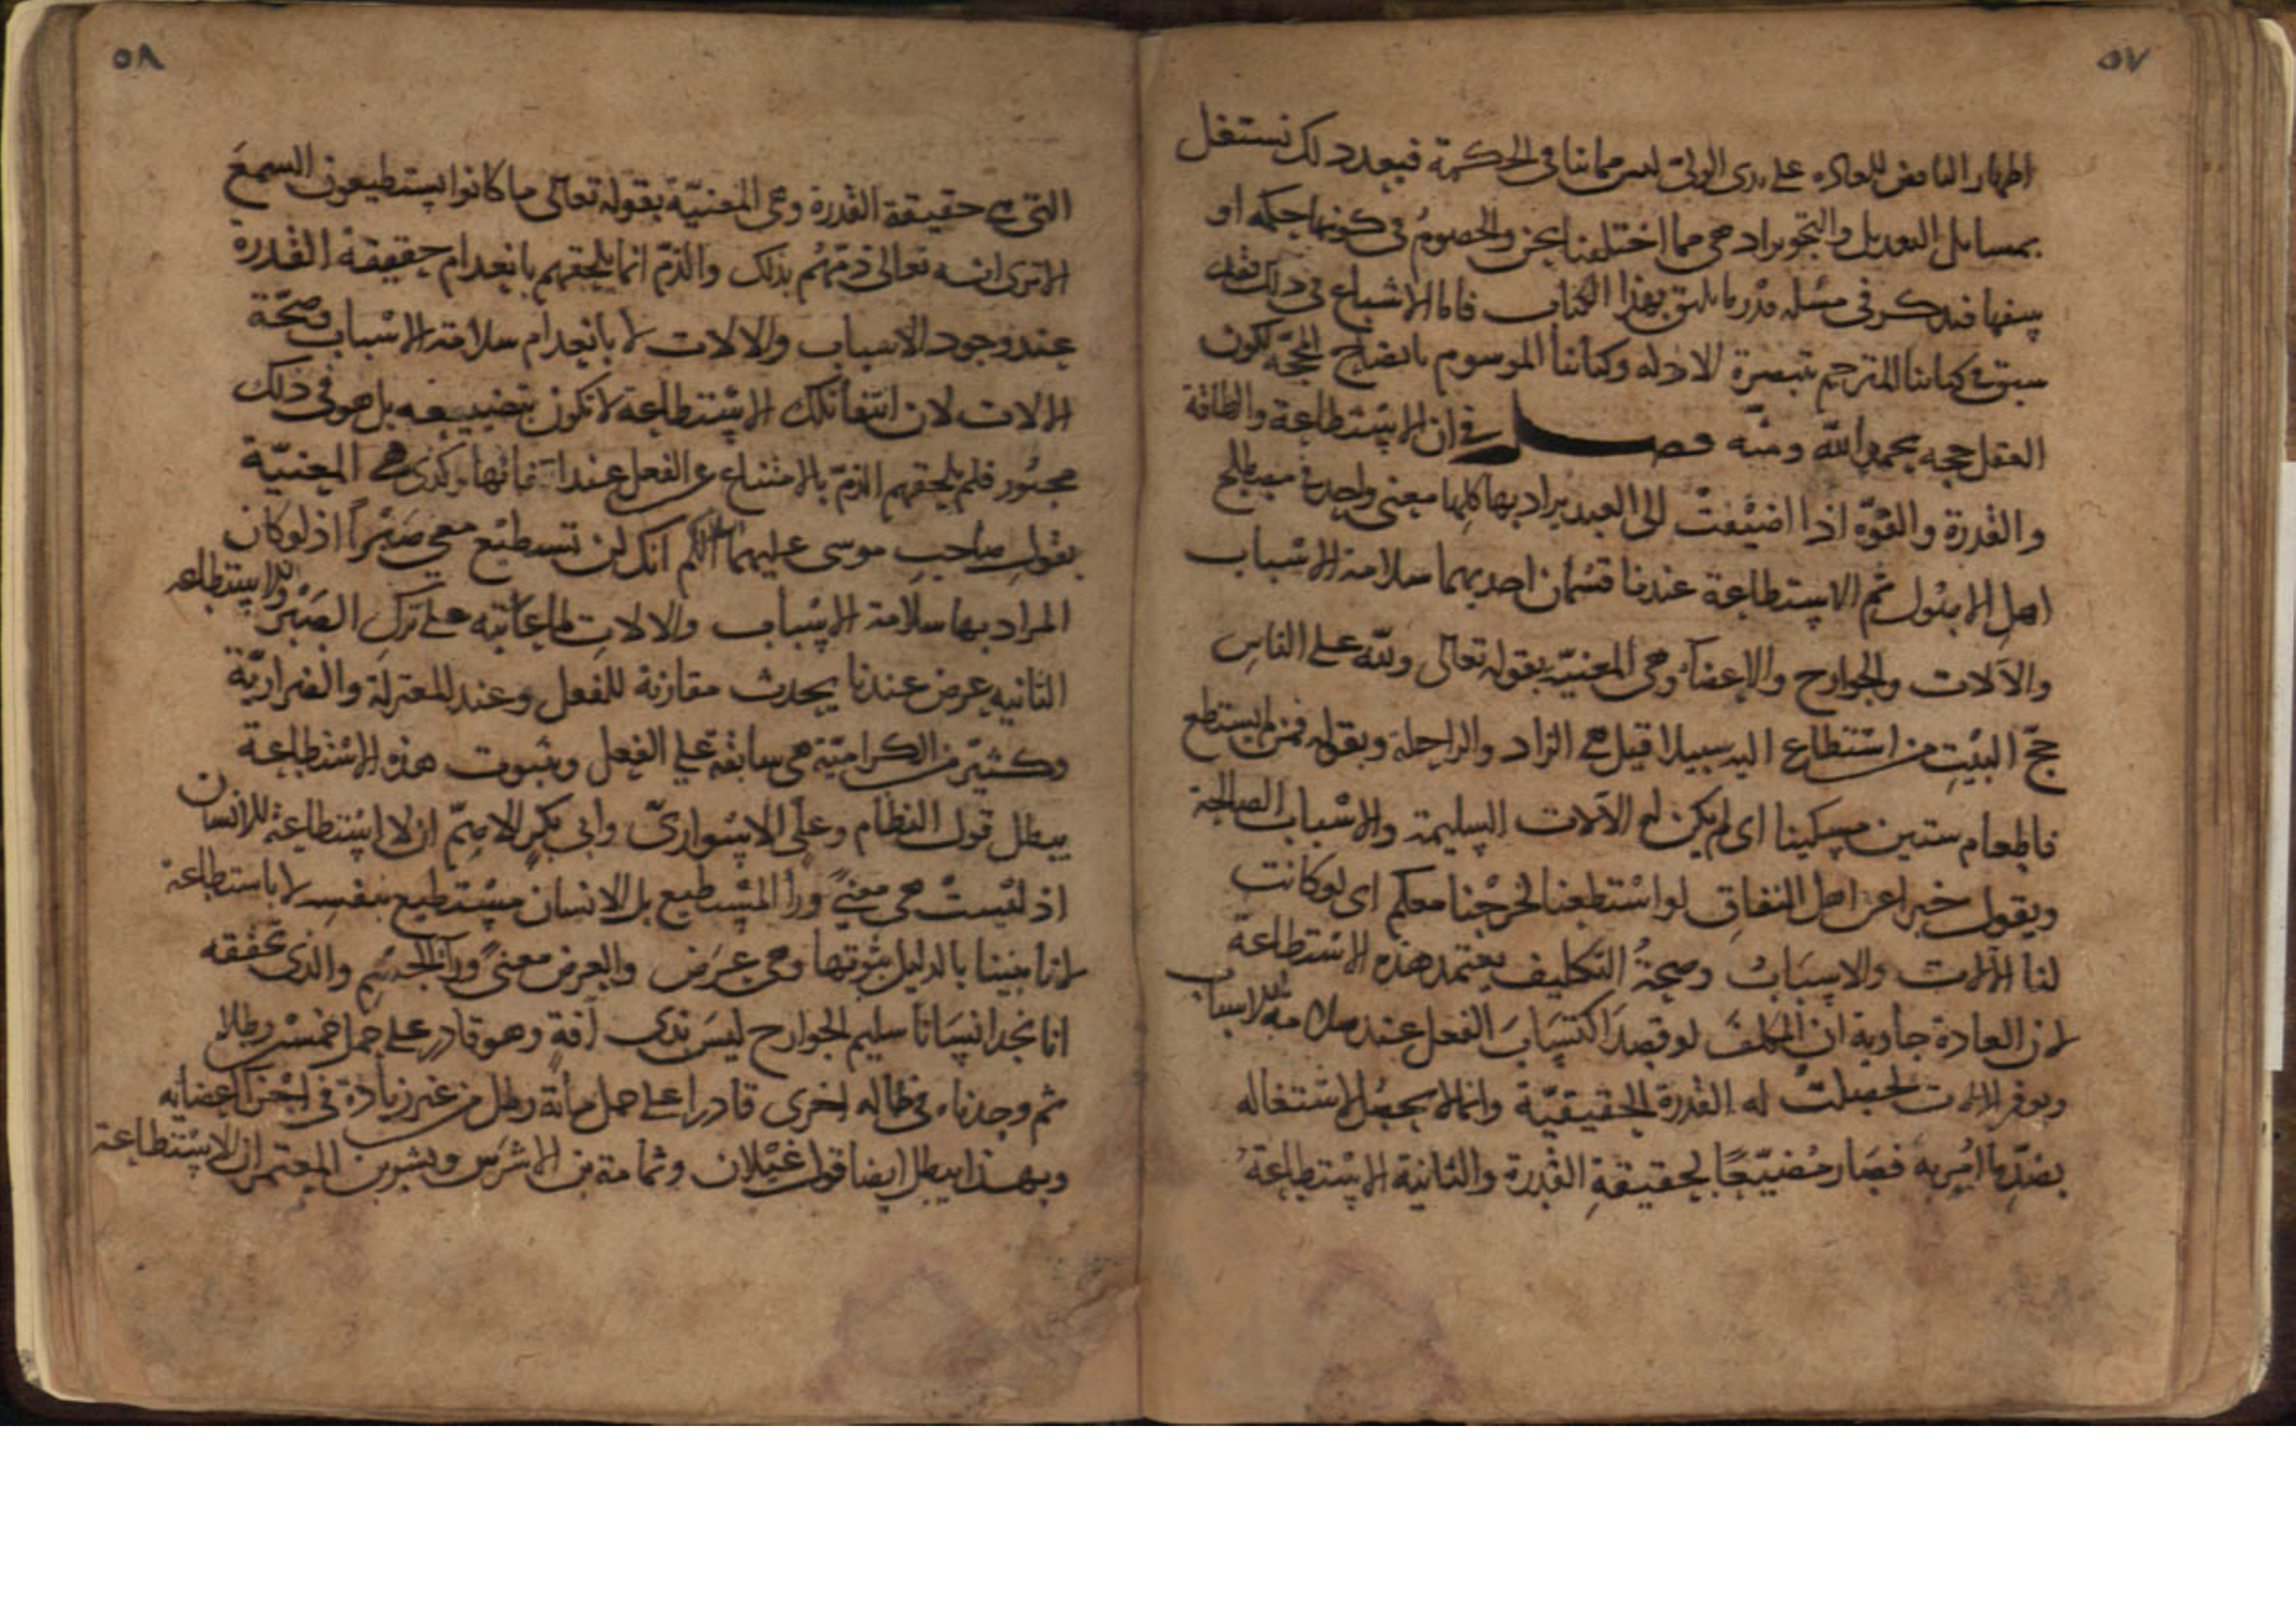 ٥٧
اظهار الناقض للعادة على يدى الولى ليس مما ينافى الحكمة فبعد ذلك نشتغل
بمسايل التعديل والتجوير اذ هى مما اختلفنا نحن والخصوم فى كونها حكمة او
سفها فنذكر فى مسئلة قدر ما يليق بهذا الكتاب فاما الاشباع فى ذلك فقد
سبق فى كتابنا المترجم تبصرة الادلة وكتابنا الموسوم بايضاح المحجة لكون
العقل حجة بحمد الله ومنه فصل فى ان الاستطاعة والطاقة
والقدرة والقوة اذا اضيفت الى العبد يراد بها كلها معنى واحد فى مصطلح
اهل الاصول ثم الاستطاعة عندنا قسمان احديهما سلامة الاسباب
والآلات والجوارح والاعضاء وهى المعنية بقوله تعالى ولله على الناس
حج البيت من استطاع اليه سبيلا قيل هى الزاد والراحلة وبقوله فمن لم يستطع
فاطعام ستين مسكينا اى لم يكن له الآلات السليمة والاسباب الصالحة
وبقوله خبرا عن اهل النفاق لو استطعنا لخرجنا معكم اى لو كانت
لنا الآلات والاسباب وصحة التكليف يعتمد هذه الاستطاعة
لان العادة جارية ان المكلف لو قصد اكتساب الفعل عند سلامة الاسباب
وتوفر الآلات لحصلت له القدرة الحقيقية وانما لا يحصل لاشتغاله
بضد ما امر به فصار مضيعا لحقيقة القدرة والثانية الاستطاعة
٥٨
التى هى حقيقة القدرة وهى المعنية بقوله تعالى ما كانوا يستطيعون السمع
الا ترى انه تعالى ذمهم بذلك والذم انما يلحقهم بانعدام حقيقة القدرة
عند وجود الاسباب والالات لا بانعدام سلامة الاسباب وصحة
الالات لان انتفا تلك الاستطاعة لا تكون بتضييعه بل هو فى ذلك
مجبور فلم يلحقهم الذم بالامتناع عن الفعل عند انتفائها وكذى هى المعنية
بقول صاحب موسى عليهما السلم انك لن تستطيع معى صبرا اذ لو كان
المراد بها سلامة الاسباب والالات لما عاتبه على ترك الصبر والاستطاعة
الثانية عرض عندنا يحدث مقارنة للفعل وعند المعتزلة والضرارية
وكثير من الكرامية هى سابقة على الفعل وبثبوت هذه الاستطاعة
يبطل قول النظام وعلى الاسوارى وابى بكر الاصم ان لا استطاعة للانسان
اذ ليست هى معنى ورأ المستطيع بل الانسان مستطيع بنفسه لا باستطاعة
لانا بينا بالدليل ثبوتها وهى عرض والعرض معنى ورآ الجسم والذى تحققه
انا نجد انسانا سليم الجوارح ليس بذى آفة وهو قادر على حمل خمسين رطلا
ثم وجدناه فى حالة اخرى قادرا على حمل مائة رطل من غير زيادة فى اجزا اعضايه
وبهذا يبطل ايضا قول غيلان وثمامة بن الاشرس وبشر بن المعتمر ان الاستطاعة